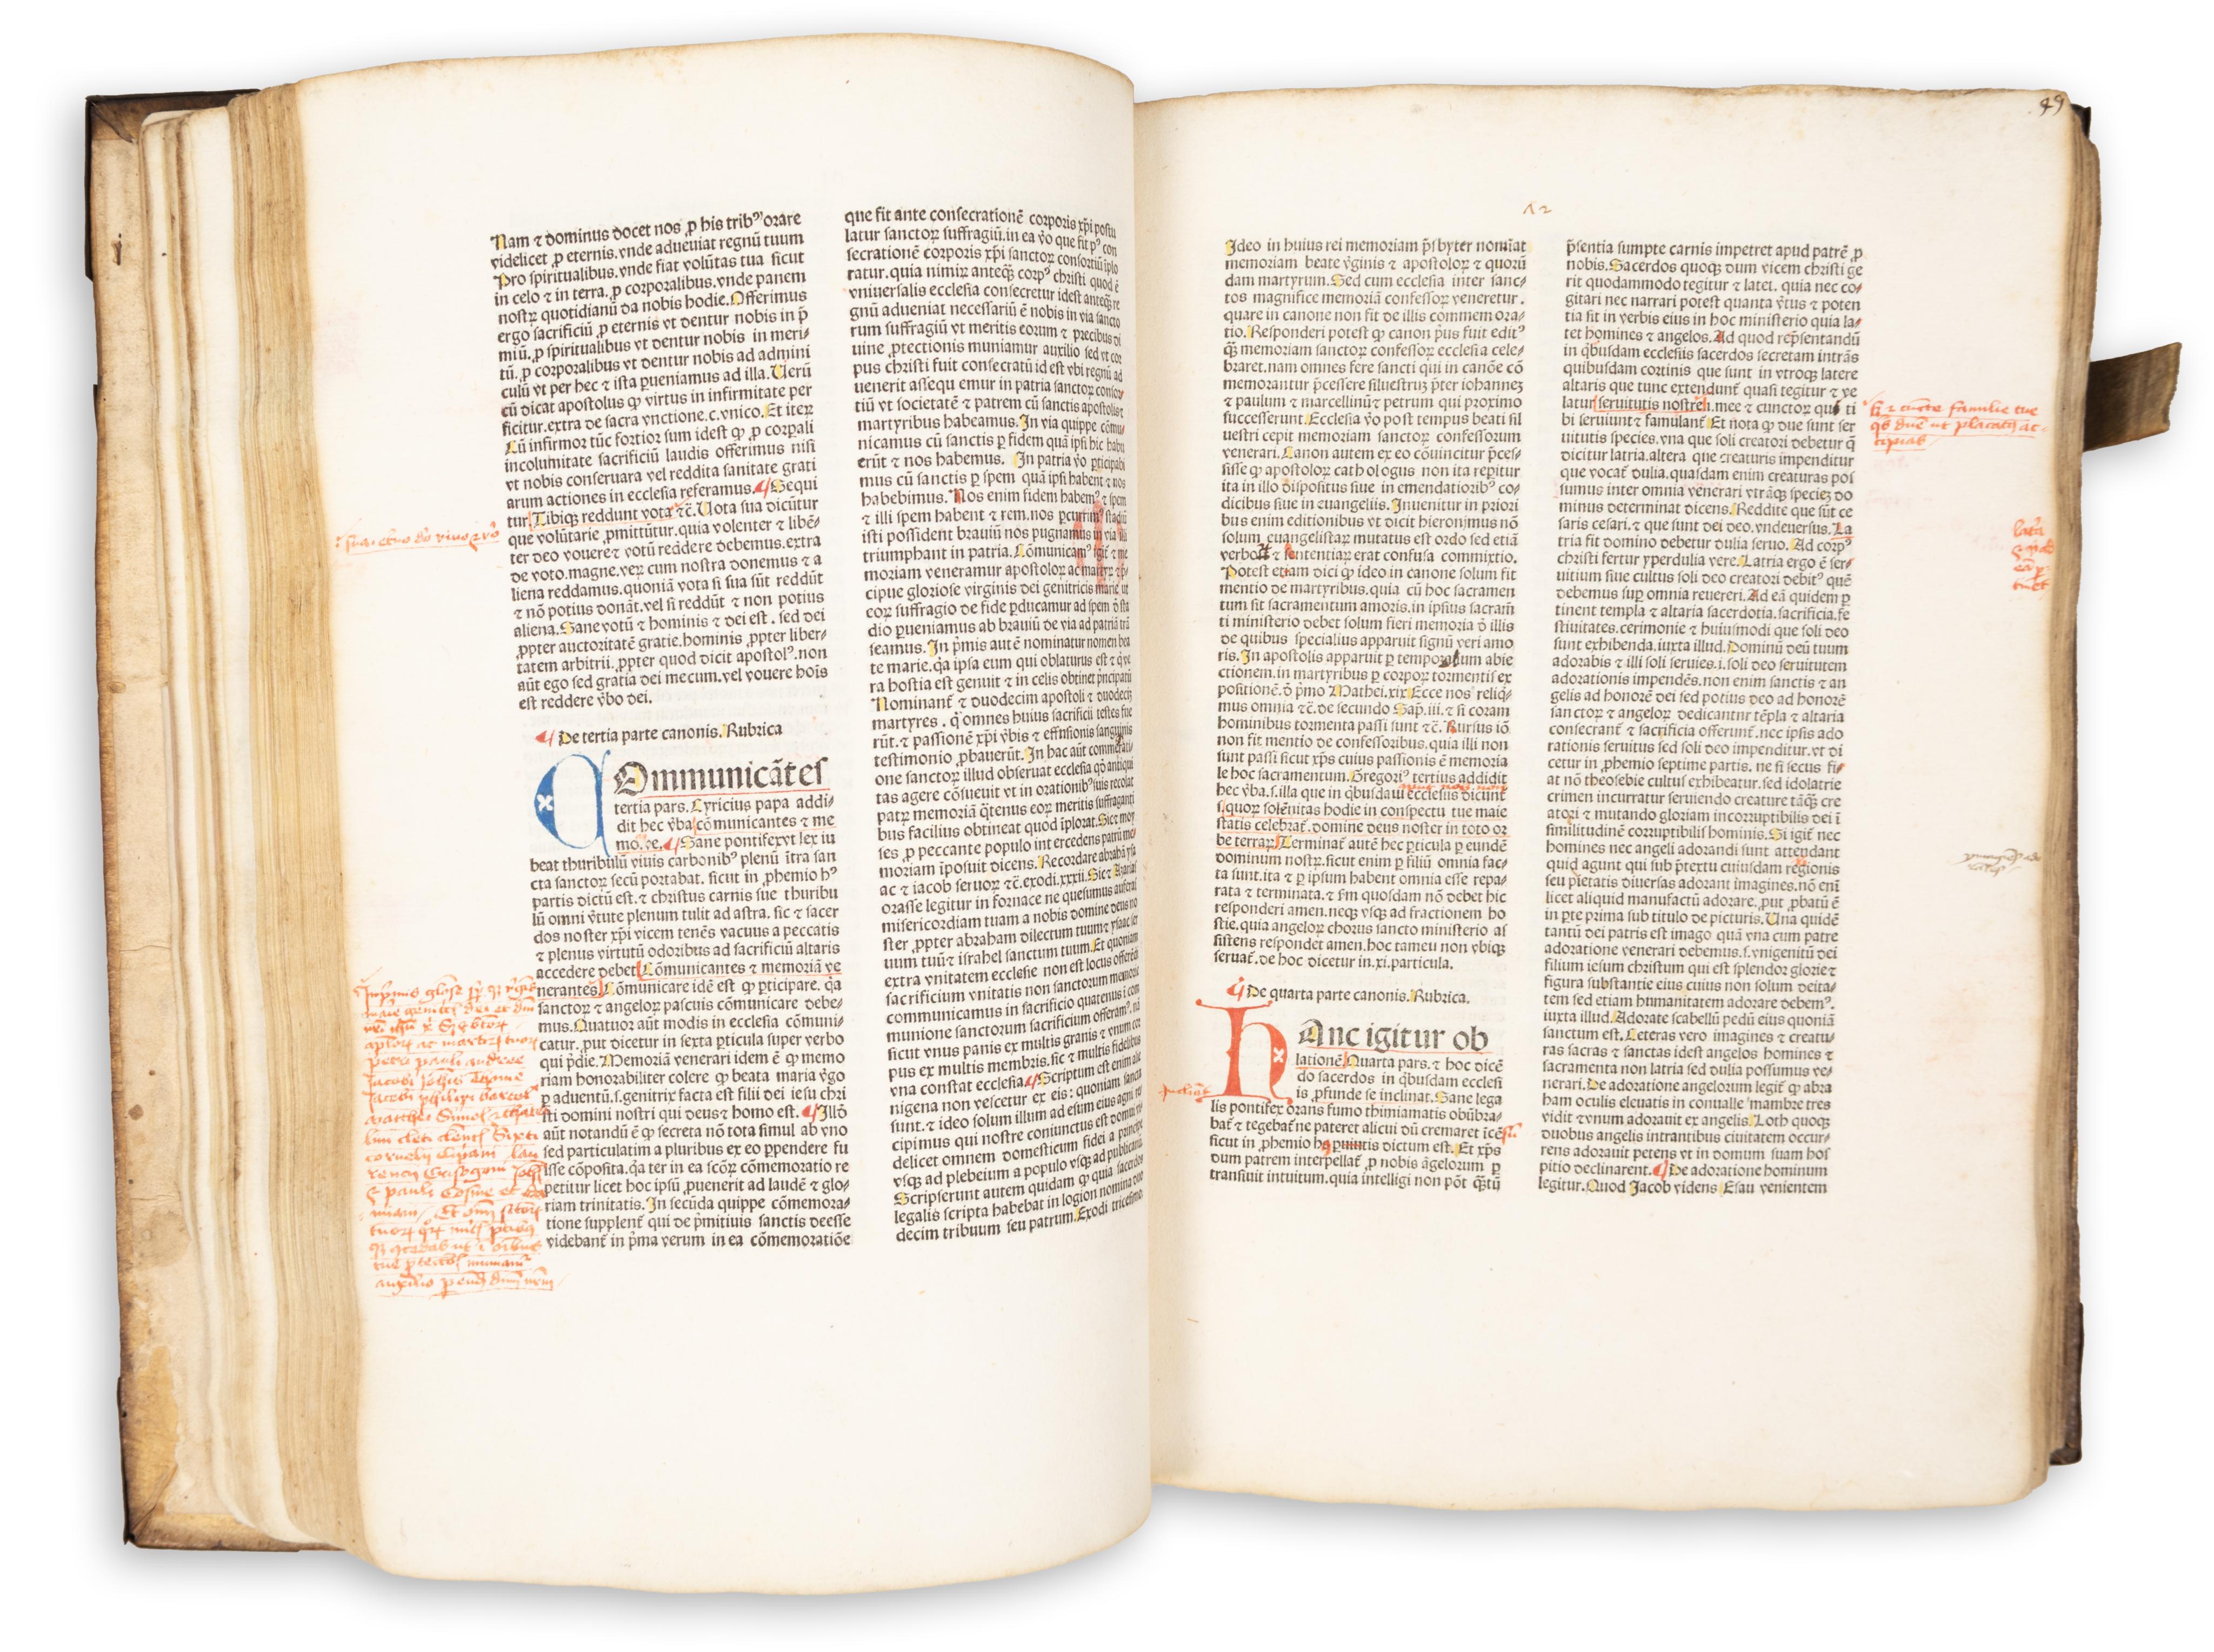 Nam ⁊ dominus docet nos ꝓ his tribꝰ orare
videlicet ꝓ eternis.vnde adueniat regnū tuum
Pro spiritualibus.vnde fiat volūtas tua sicut
in celo ⁊ in terra.ꝓ corporalibus.vnde panem
nostꝝ quotidianū da nobis hodie.Offerimus
ergo sacrificiū ꝓ eternis vt dentur nobis in p̄
miū.ꝓ spiritualibus vt dentur nobis in meri-
tū.ꝓ corporalibus vt dentur nobis ad admini
culū vt per hec ⁊ ista ꝑueniamus ad illa.Uerū
cū dicat apostolus ꝙ virtus in infirmitate per
ficitur.extra de sacra vnctione.c.vnico.Et iteꝝ
Cū infirmor tūc fortior sum idest ꝙ ꝓ corꝑali
incolumitate sacrificiū laudis offerimus nisi
vt nobis conseruara vel reddita sanitate grati
arum actiones in ecclesia referamus.¶Sequi
tur.Tibiqꝫ reddunt vota ⁊c̄.Uota sua dicūtur
que volūtarie ꝓmittūtur.quia volenter ⁊ libē-
ter deo vouere ⁊ votū reddere debemus.extra
de voto.magne.veꝝ cum nostra donemus ⁊ a
liena reddamus.quoniā vota si sua sūt reddūt
⁊ nō potius donāt.vel si reddūt ⁊ non potius
aliena.Sane votū ⁊ hominis ⁊ dei est.sed dei
ꝓpter auctoritatē gratie.hominis ꝓpter liber-
tatem arbitrii.ꝓpter quod dicit apostolꝰ.non
aūt ego sed gratia dei mecum.vel vouere hoīs
est reddere v̄bo dei.
¶De tertia parte canonis.Rubrica
COmmunicātes
tertia pars.Cyricius papa addi-
dit hec v̄ba cōmunicantes ⁊ me
mo.ve.¶Sane pontifex vt lex iu
beat thuribulū viuis carbonibꝰ plenū ītra san
cta sanctoꝝ secū portabat.sicut in ꝓhemio hꝰ
partis dictū est.⁊ christus carnis sue thuribu
lū omni v̄tute plenum tulit ad astra.sic ⁊ sacer
dos noster xp̄i vicem tenēs vacuus a peccatis
⁊ plenus virtutū odoribus ad sacrificiū altaris
accedere debet.Cōmunicantes ⁊ memoriā ve
nerantes.Cōmunicare idē est ꝙ ꝑticipare.q̄a
sanctoꝝ ⁊ angeloꝝ pascuis cōmunicare debe-
mus.Quatuor aūt modis in ecclesia cōmuni-
catur.put dicetur in sexta ꝑticula super verbo
qui p̄die.Memoriā venerari idem ē ꝙ memo
riam honorabiliter colere ꝙ beata maria v̄go
ꝑ aduentū.s.genitrix facta est filii dei iesu chri
sti domini nostri qui deus ⁊ homo est.¶Illō
aūt notandū ē ꝙ secreta nō tota simul ab vno
sed particulatim a pluribus ex eo ꝑpendere fu
isse cōposita.q̄a ter in ea scōꝝ cōmemoratio re
petitur licet hoc ipsū ꝓuenerit ad laudē ⁊ glo-
riam trinitatis.In secūda quippe cōmemora-
tione supplent̄ qui de p̄mitiuis sanctis deesse
videbant̄ in p̄ma verum in ea cōmemoratiōe
que fit ante consecrationē corporis xp̄i postu
latur sanctoꝝ suffragiū.in ea v̄o que fit pꝰ con
secrationē corporis xp̄i sanctoꝝ consortiū īplo
ratur.quia nimiꝝ anteqꝫ corpꝰ christi quod ē
vniuersalis ecclesia consecretur idest anteqꝫ re
gnū adueniat necessariū ē nobis in via sancto
rum suffragiū vt meritis eorum ⁊ precibus di
uine ꝓtectionis muniamur auxilio sed vt cor
pus christi fuit consecratū id est vbi regnū ad
uenerit assequ emur in patria sanctoꝝ consor
tiū vt societatē ⁊ patrem cū sanctis apostolis ⁊
martyribus habeamus.In via quippe cōmu
nicamus cū sanctis ꝑ fidem quā ipsi hic habu
erūt ⁊ nos habemus. In patria v̄o ꝑticipabi
mus cū sanctis ꝑ spem quā ipsi habent ⁊ nos
habebimus.Nos enim fidem habemꝰ ⁊ spem
⁊ illi spem habent ⁊ rem.nos ꝑcurrimꝰ stadiū
isti possident brauiū nos pugnamus in via illi
triumphant in patria.Cōmunicamꝰ igit̄ ⁊ me
moriam veneramur apostoloꝝ ac martyꝝ ⁊ p̄-
cipue gloriose virginis dei genitricis marie.ut
eoꝝ suffragio de fide ꝓducamur ad spem ⁊ sta
dio ꝑueniamus ab brauiū de via ad patriā trā
seamus.In p̄mis autē nominatur nomen bea
te marie.q̄a ipsa eum qui oblaturus est ⁊ q̄ ve
ra hostia est genuit ⁊ in celis obtinet p̄ncipatū
Nominant̄ ⁊ duodecim apostoli ⁊ duodeciꝫ
martyres.q̄ omnes huius sacrificii testes fue
rūt.⁊ passionē xp̄i v̄bis ⁊ effusionis sanguinis
testimonio ꝓbauerūt.In hac aūt commerati-
one sanctoꝝ illud obseruat ecclesia qd̄ antiqui
tas agere cōsueuit vt in orationibꝰ suis recolat
patꝝ memoriā q̄tenus eoꝝ meritis suffraganti
bus facilius obtineat quod īplorat.Sic ⁊ moy
ses ꝓ peccante populo intercedens patrū me
moriam īposuit dicens.Recordare abrahā ysa
ac ⁊ iacob seruoꝝ ⁊c̄.exodi.xxxii.Sic ⁊ Azarias
orasse legitur in fornace ne quesumus auferas
misericordiam tuam a nobis domine deus no
ster ꝓpter abraham dilectum tuum ⁊ ysaac ser
uum tuū ⁊ israhel sanctum tuum.Et quoniam
extra vnitatem ecclesie non est locus offerēdi
sacrificium vnitatis non sanctorum memorie
communicamus in sacrificio quatenus i com
munione sanctorum sacrificium offeramꝰ.nā
sicut vnus panis ex multis granis ⁊ vnum cor
pus ex multis membris.sic ⁊ multis fidelibus
vna constat ecclesia.¶Scriptum est enim alie
nigena non vescetur ex eis: quoniam sancta
sunt.⁊ ideo solum illum ad esum eius agni re
cipimus qui nostre coniunctus est domui vs
delicet omnem domesticum fidei a principe
vsqꝫ ad plebeium a populo vsqꝫ ad publicanū
Scripserunt autem quidam ꝙ quia sacerdos
legalis scripta habebat in logion nomina duo
decim tribuum seu patrum.Exodi tricesimo
99
Ideo in huius rei memoriam p̄sbyter nominat
memoriam beate v̄ginis ⁊ apostoloꝝ ⁊ quorū
dam martyrum.Sed cum ecclesia inter sanc-
tos magnifice memoriā confessoꝝ veneretur.
quare in canone non fit de illis commem ora-
tio.Responderi potest ꝙ canon p̄us fuit editꝰ
qꝫ memoriam sanctoꝝ confessoꝝ ecclesia cele-
braret.nam omnes fere sancti qui in canōe cō
memorantur p̄cessere siluestruꝫ p̄ter iohanneꝫ
⁊ paulum ⁊ marcellinū ⁊ petrum qui proximo
successerunt.Ecclesia v̄o post tempus beati sil
uestri cepit memoriam sanctoꝝ confessorum
venerari.Canon autem ex eo cōuincitur p̄ces-
sisse ꝙ apostoloꝝ cath ologus non ita repitur
ita in illo dispositus siue in emendatioribꝰ co-
dicibus siue in euangeliis.Inuenitur in priori
bus enim editionibus vt dicit hieronjmus nō
solum euangelistaꝝ mutatus est ordo sed etiā
verboꝝ ⁊ sententiaꝝ erat confusa commixtio.
Potest etiam dici ꝙ ideo in canone solum fit
mentio de martyribus.quia cū hoc sacramen
tum sit sacramentum amoris.in ipsius sacram̄
ti ministerio debet solum fieri memoria ō illis
de quibus specialius apparuit signū veri amo
ris.In apostolis apparuit ꝑ temporalium abie
ctionem.in martyribus ꝑ corpoꝝ tormentis ex
positionē.ō p̄mo Mathei.xix.Ecce nos reliq̄-
mus omnia ⁊c̄.de secundo Sap̄.iii.⁊ si coram
hominibus tormenta passi sunt ⁊c̄.Rursus iō
non fit mentio de confessoribus.quia illi non
sunt passi sicut xp̄s cuius passionis ē memoria
le hoc sacramentum.Gregoriꝰ tertius addidit
hec v̄ba.s.illa que in q̄busdā ui ecclesiis dicunt̄
s.quoꝝ solēnitas hodie in conspectu tue maie
statis celebrat̄.domine deus noster in toto or
be terraꝝ.Terminat̄ autē hec ꝑticula ꝑ eundē
dominum nostꝝ.sicut enim ꝑ filiū omnia fac-
ta sunt.ita ⁊ ꝑ ipsum habent omnia esse repa-
rata ⁊ terminata.⁊ s̄m quosdam nō debet hic
responderi amen.neqꝫ vsqꝫ ad fractionem ho
stie.quia angeloꝝ chorus sancto ministerio as
sistens respondet amen.hoc tameu non vbiqꝫ
seruat̄.de hoc dicetur in.xi.particula.
¶De quarta parte canonis.Rubrica.
hAnc igitur ob
lationē.Quarta pars.⁊ hoc dicē
do sacerdos in q̄busdam ecclesi
is ꝓfunde se inclinat.Sane lega
lis pontifex orans fumo thimiamatis obūbra-
bat̄ ⁊ tegebat̄ ne pateret alicui dū cremaret īcēsū
sicut in ꝓhemio hꝰ dictum est.Et xp̄s
dum patrem interpellat̄ ꝓ nobis āgelorum ꝑ
transiuit intuitum.quia intelligi non pōt q̄tū
p̄sentia sumpte carnis impetret apud patrē ꝓ
nobis.Sacerdos quoqꝫ dum vicem christi ge
rit quodammodo tegitur ⁊ latet. quia nec co-
gitari nec narrari potest quanta v̄tus ⁊ poten
tia sit in verbis eius in hoc ministerio quia la-
tet homines ⁊ angelos.Ad quod rep̄sentandū
in q̄busdam ecclesiis sacerdos secretam intrās
quibusdam cortinis que sunt in vtroqꝫ latere
altaris que tunc extendunt̄ quasi tegitur ⁊ ve
latur.seruitutis nostre.i.mee ⁊ cunctoꝝ qui ti
bi seruiunt ⁊ famulant̄ Et nota ꝙ due sunt ser
uitutis species.vna que soli creatori debetur q̄
dicitur latria.altera que creaturis impenditur
que vocat̄ dulia.quasdam enim creaturas pos
sumus inter omnia venerari vtrāqꝫ specieꝫ do
minus determinat dicens.Reddite que sūt ce
saris cesari.⁊ que sunt dei deo.vndeuersus.La
tria fit domino debetur dulia seruo.Ad corpꝰ
christi fertur yperdulia vere.Latria ergo ē ser-
uitium siue cultus soli deo creatori debitꝰ quē
debemus suꝑ omnia reuereri.Ad eā quidem ꝑ
tinent templa ⁊ altaria sacerdotia.sacrificia.fe
stiuitates.cerimonie ⁊ huiusmodi que soli deo
sunt exhibenda.iuxta illud.Dominū deū tuum
adorabis ⁊ illi soli seruies.i.soli deo seruitutem
adorationis impendēs.non enim sanctis ⁊ an
gelis ad honorē dei sed potius deo ad honorē
sanctoꝝ ⁊ angeloꝝ dedicantnr tēpla ⁊ altaria
consecrant̄ ⁊ sacrificia offerunt̄.nec ipsis ado
rationis seruitus sed soli deo impenditur.vt di
cetur in ꝓhemio septime partis. ne si secus fi-
at nō theosebie cultus exhibeatur.sed idolatrie
crimen incurratur seruiendo creature tāqꝫ cre
atori ⁊ mutando gloriam incorruptibilis dei ī
similitudinē corruptibilis hominis.Si igit̄ nec
homines nec angeli adorandi sunt attendant
quid agunt qui sub p̄textu cuiusdam regionis
seu pietatis diuersas adorant imagines.nō eni
licet aliquid manufactū adorare.put ꝓbatū ē
in p̄te prima sub titulo de picturis.Una quidē
tantū dei patris est imago quā vna cum patre
adoratione venerari debemus.s.vnigenitū dei
filium iesum christum qui est splendor glorie ⁊
figura substantie eius cuius non solum deita-
tem sed etiam humanitatem adorare debemꝰ.
iuxta illud.Adorate scabellū pedū eius quoniā
sanctum est.Ceteras vero imagines ⁊ creatu-
ras sacras ⁊ sanctas idest angelos homines ⁊
sacramenta non latria sed dulia possumus ve-
nerari.De adoratione angelorum legit̄ ꝙ abra
ham oculis eleuatis in conualle mambre tres
vidit ⁊ vnum adorauit ex angelis.Loth quoqꝫ
duobus angelis intrantibus ciuitatem occur-
rens adorauit petens vt in domum suam hos
pitio declinarent.¶De adoratione hominum
legitur.Quod Jacob videns Esau venientem